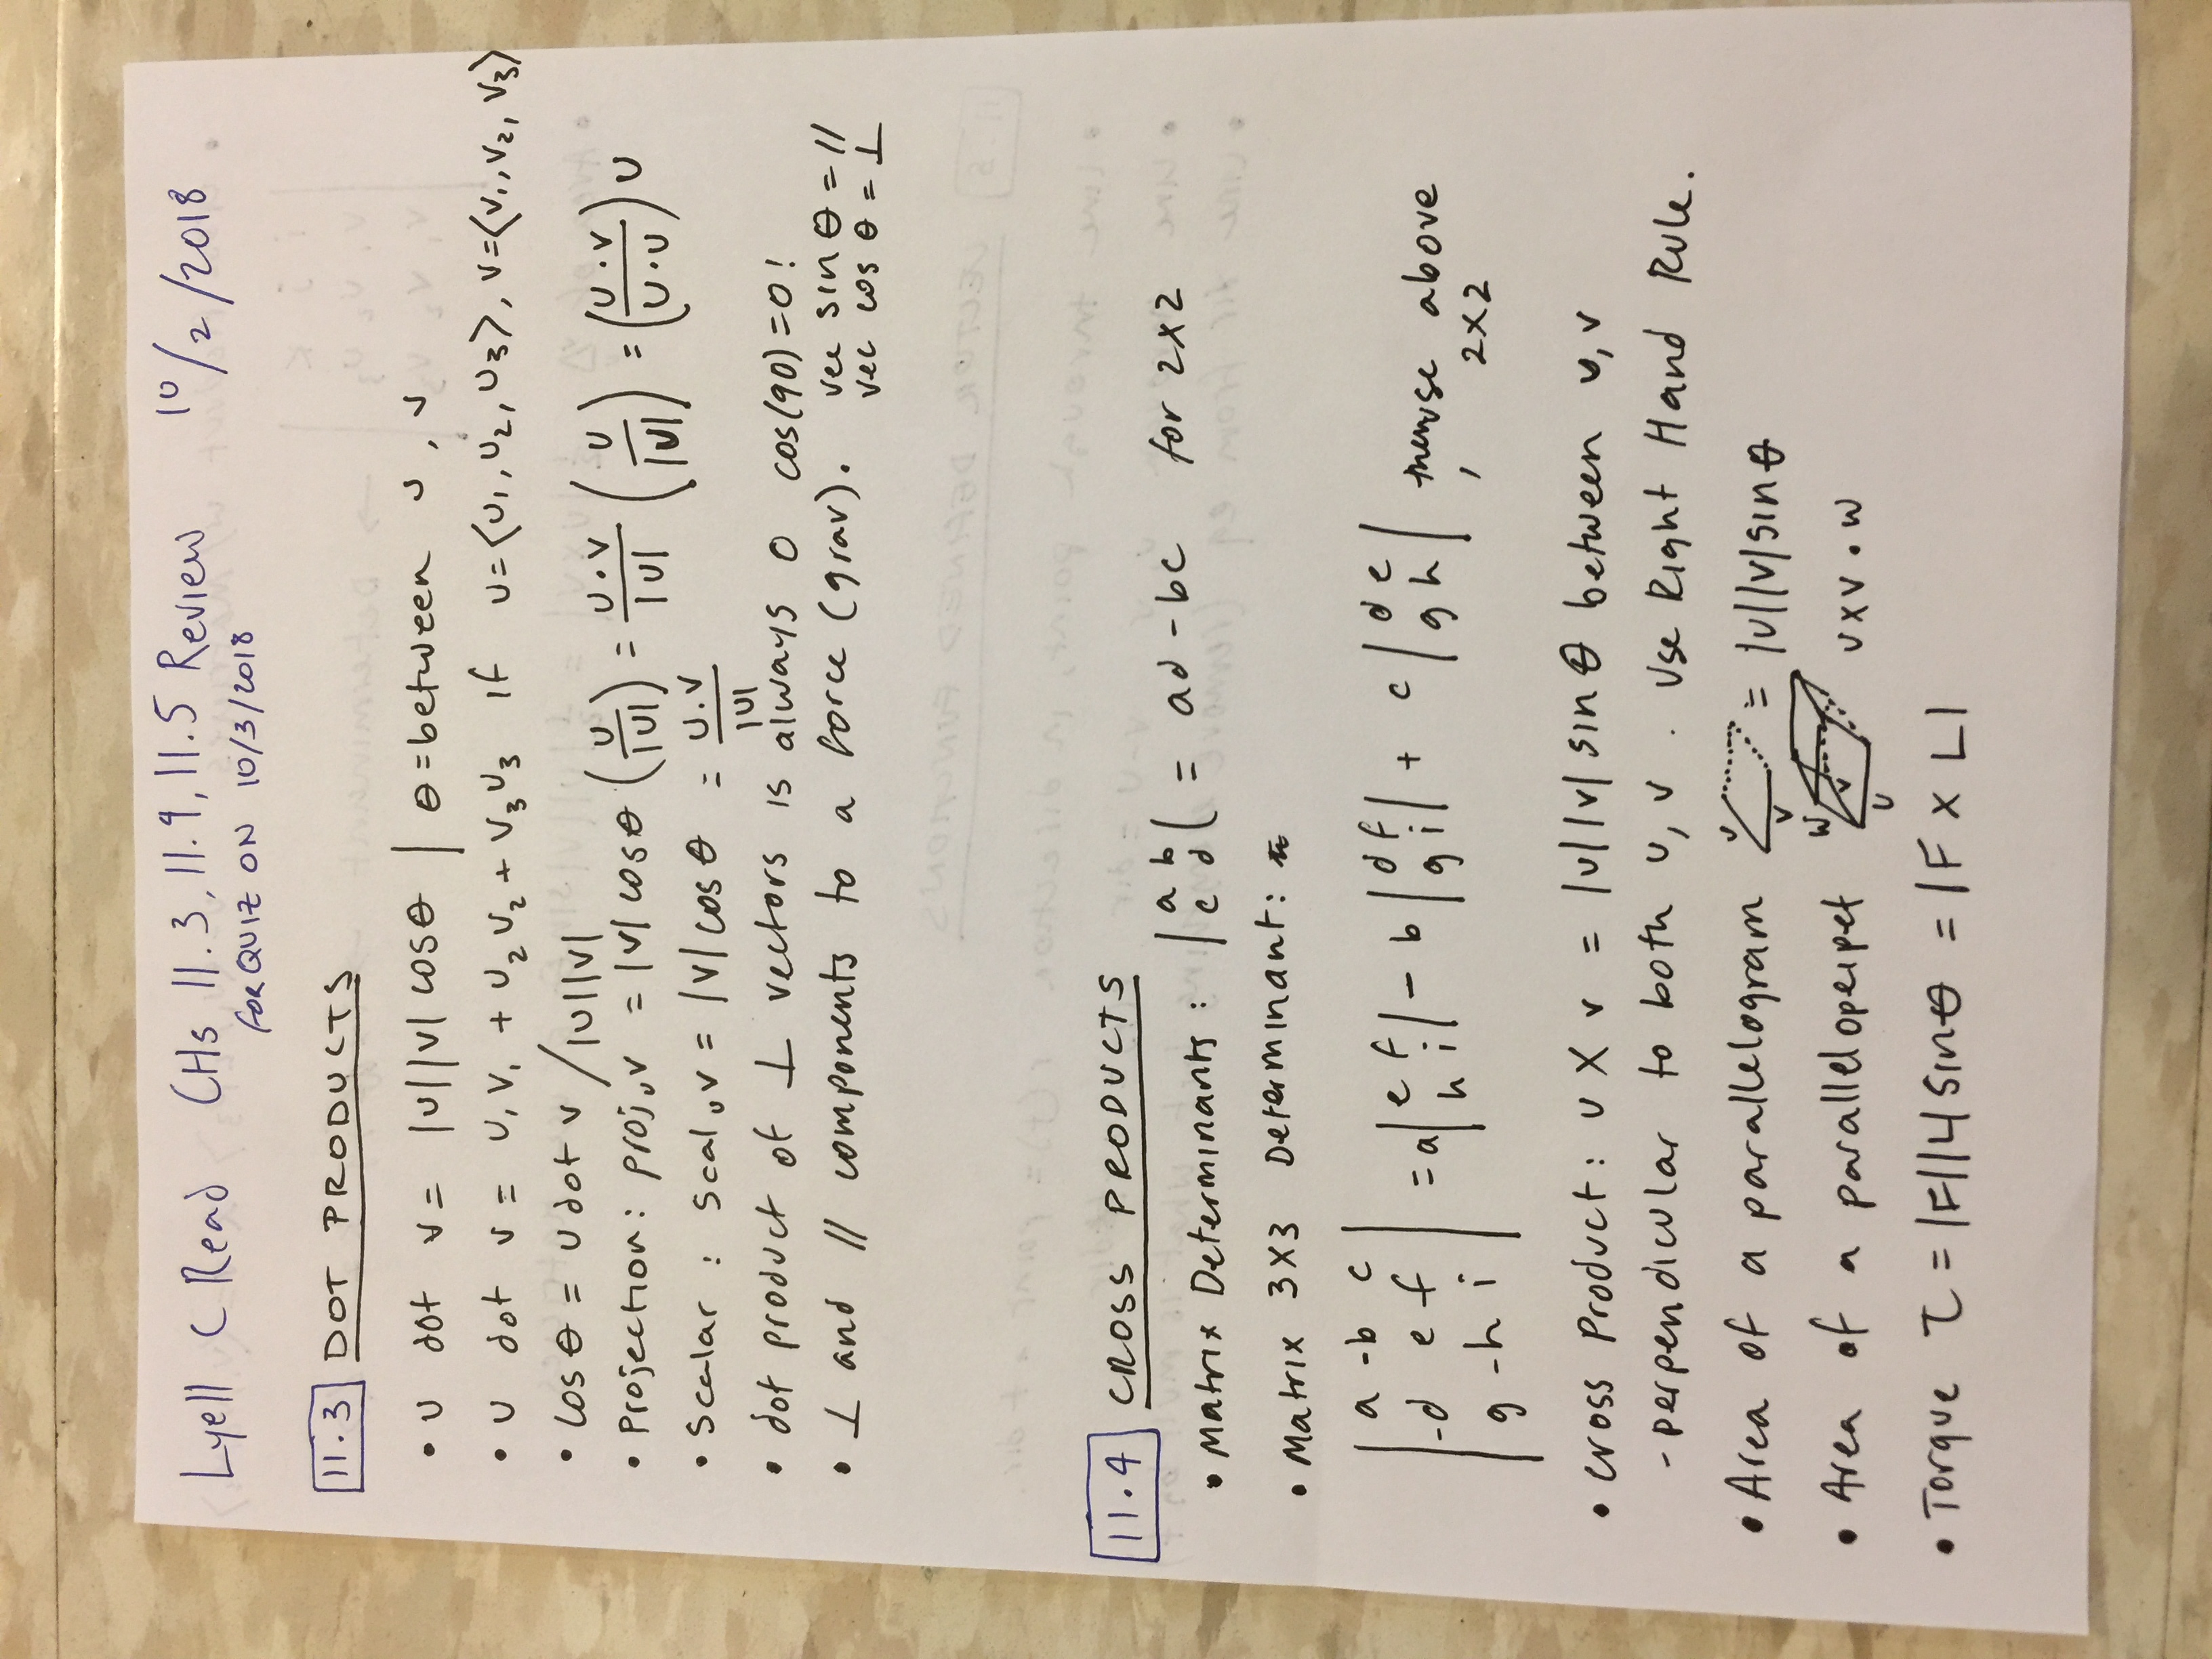 Lyell C Read CHs 11.3, 11.4, 11.5 Review 10/2/2018
FOR QUIZ ON 10/3/2018
11.3 DOT PRODUCTS
• u dot v = |u||v| cosθ | θ = between u, v
• u dot v = u₁v₁ + u₂v₂ + v₃u₃ if u=⟨u₁, u₂, u₃⟩, v=⟨v₁, v₂, v₃⟩
• cos θ = u dot v / |u||v|
• Projection: projᵤv = |v| cosθ (u/|u|) = u·v/|u| (u/|u|) = (u·v/u·u) u
• Scalar : scalᵤv = |v| cos θ = u·v/|u|
• dot product of ⊥ vectors is always 0 cos(90)=0!
• ⊥ and // components to a force (grav). vec sin θ = //
vec cos θ = ⊥
11.4 CROSS PRODUCTS
• Matrix Determinants: |a b
c d| = ad - bc for 2x2
• Matrix 3x3 Determinant:
| a -b c |
| -d e f | = a |e f
h i| - b |d f
g i| + c |d e
g h| , use above
| g -h i | 2x2
• cross Product: u X v = |u||v| sin θ between u, v
- perpendicular to both u, v . Use Right Hand Rule.
• Area of a parallelogram u v = |u||v| sin θ
• Area of a parallelopeipet w v u u x v • w
• Torque τ = |F||L| sin θ = |F x L|